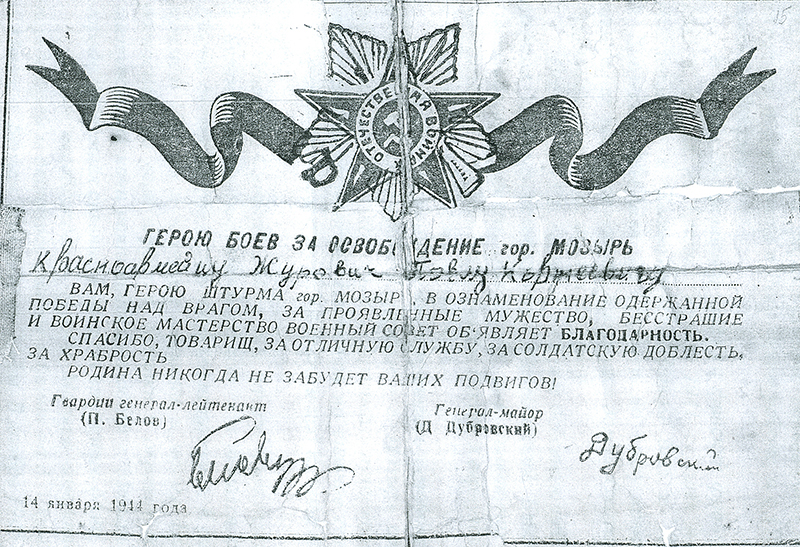 15
ОТЕЧЕСТВЕННАЯ ВОЙНА
ГЕРОЮ БОЕВ ЗА ОСВОБОЖДЕНИЕ гор. МОЗЫРЬ
Красноармейцу Журович Павлу
ВАМ, ГЕРОЮ ШТУРМА гор. МОЗЫРЬ, В ОЗНАМЕНОВАНИЕ ОДЕРЖАННОЙ
ПОБЕДЫ НАД ВРАГОМ, ЗА ПРОЯВЛЕННЫЕ МУЖЕСТВО, БЕССТРАШИЕ
И ВОИНСКОЕ МАСТЕРСТВО ВОЕННЫЙ СОВЕТ ОБ'ЯВЛЯЕТ БЛАГОДАРНОСТЬ.
СПАСИБО, ТОВАРИЩ, ЗА ОТЛИЧНУЮ СЛУЖБУ, ЗА СОЛДАТСКУЮ ДОБЛЕСТЬ,
ЗА ХРАБРОСТЬ
РОДИНА НИКОГДА НЕ ЗАБУДЕТ ВАШИХ ПОДВИГОВ!
Гвардии генерал-лейтенант
(П. Белов)
Генерал-майор
(Д Дубровский)
Дубровский
14 января 1944 года